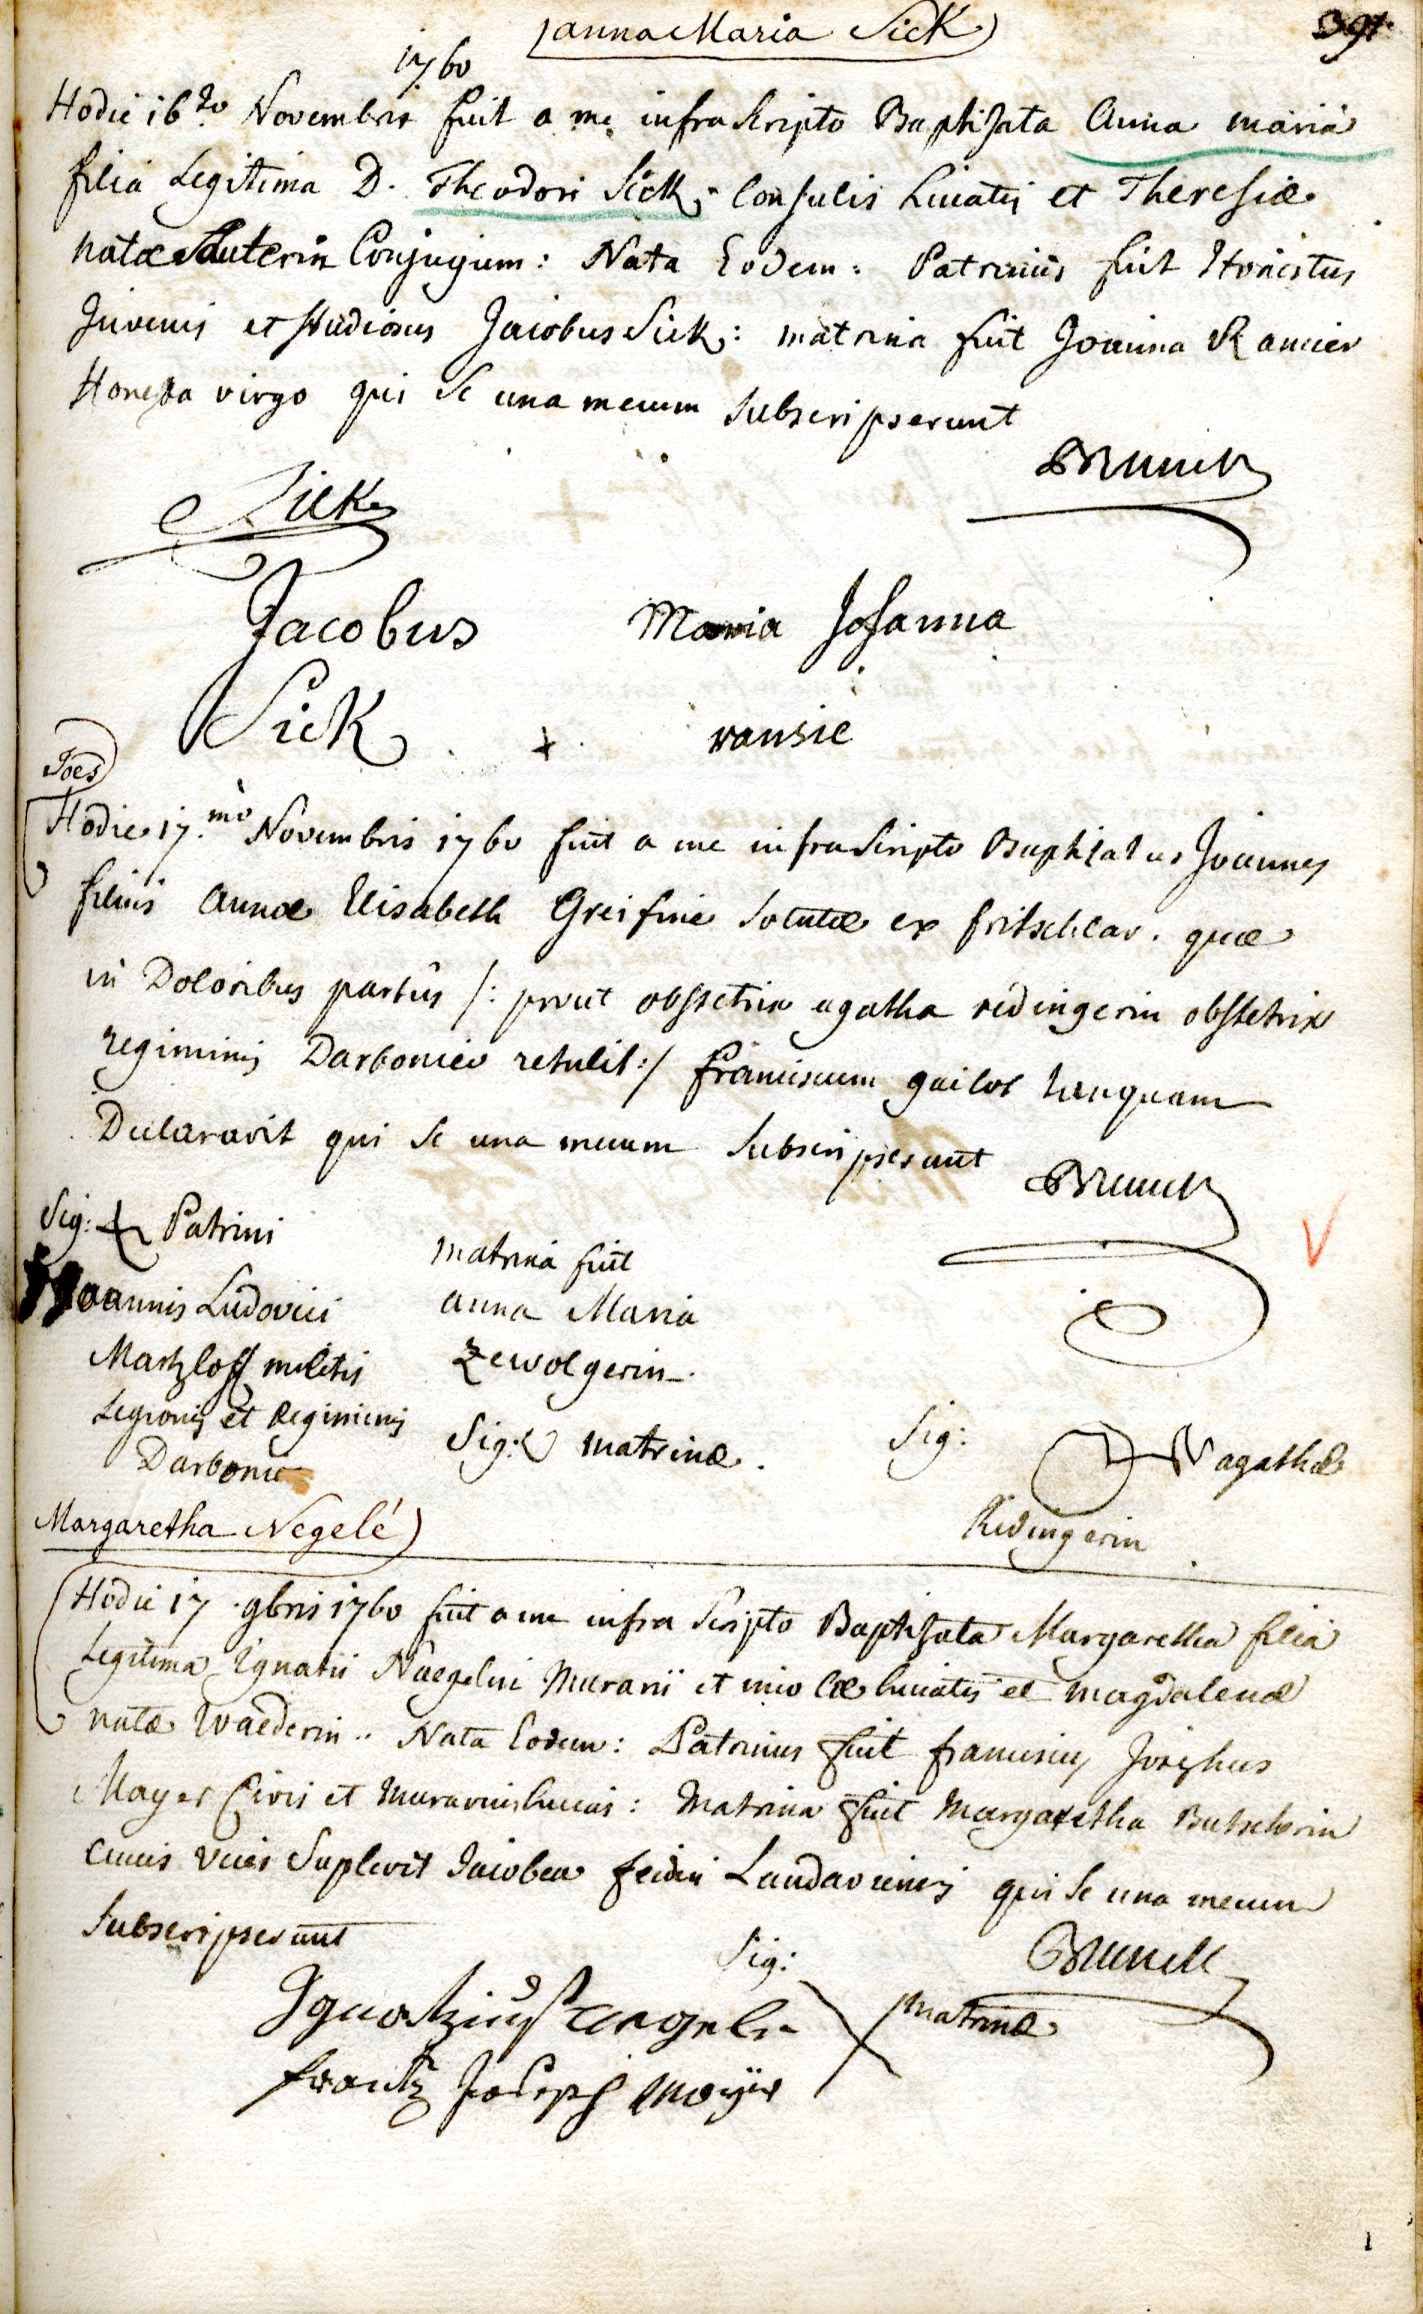 anna Maria Sick
391.
1760
Hodie 16to Novembris fuit a me infra scripto Baptizata Anna maria
filia Legitima D. Theodori Sick Consulis huiatis et Theresiæ
natæ Sauterin Conjugum: Nata Eodem: Patrinus fuit Honestus
Juvenis et studiosus Jacobus Sick: matrina fuit Joanna
Honesta virgo qui se una mecum subscripserunt
Brunck
Sick
Jacobus
Maria Johanna
Sick
ransie
Joes
Hodie 17.mo Novembris 1760 fuit a me infra scripto Baptizatus Joannes
filius Annæ Elisabeth Greifine solutæ ex fritschlar. quæ
in Doloribus partûs /: prout obstetrix agatha ridingerin obstetrix
regiminis Darbonie retulit:/ franciscum tanquam
Declaravit qui se una mecum subscripserunt
Brunck
Sig: Patrini
Joannis Ludovici
Martzloff militis
Legionis et Regiminis
Darbonie
matrina fuit
anna Maria
Zewolgerin.
Sig: matrinæ.
Sig: agathæ
Ridingerin
Margaretha Negelé
Hodie 17. 9bris 1760 fuit a me infra scripto Baptizata Margaretha filia
Legitima Ignatii Naegelin Murarii et incolæ huiatis et magdalenæ
natæ Waederin.. Nata Eodem: Patrinus fuit franciscus Josephus
Mayer Civis et murarius huias: Matrina fuit Margaretha Butscherin
cuius vices suplevit Jacobea feidin Landaviensis qui se una mecum
subscripserunt
Brunck
Sig:
matrinæ
Ignatzius naegele
frantz Joseph Mayer